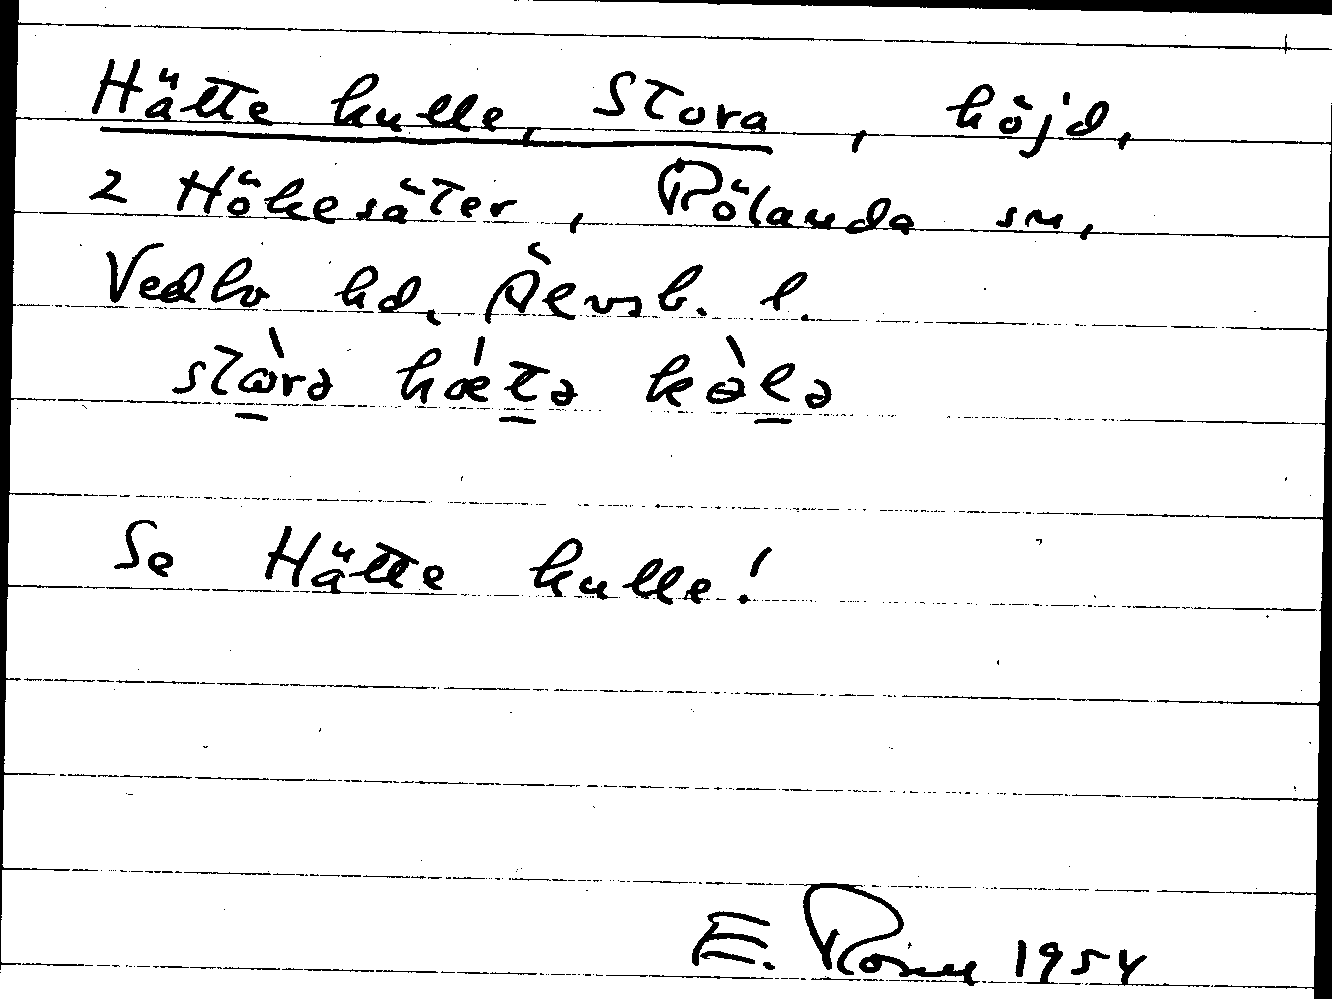 Hätte kulle, Stora, höjd,
2 Hökesäter, Rölanda sn,
Vedbo hd, Älvsb. l.
stὼrə hǽtə kə̀lə
Se Hätte kulle!
E. Rosell 1954